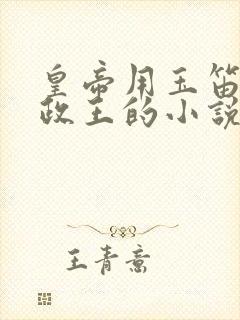 皇帝用玉笛
政王的小說
王青意